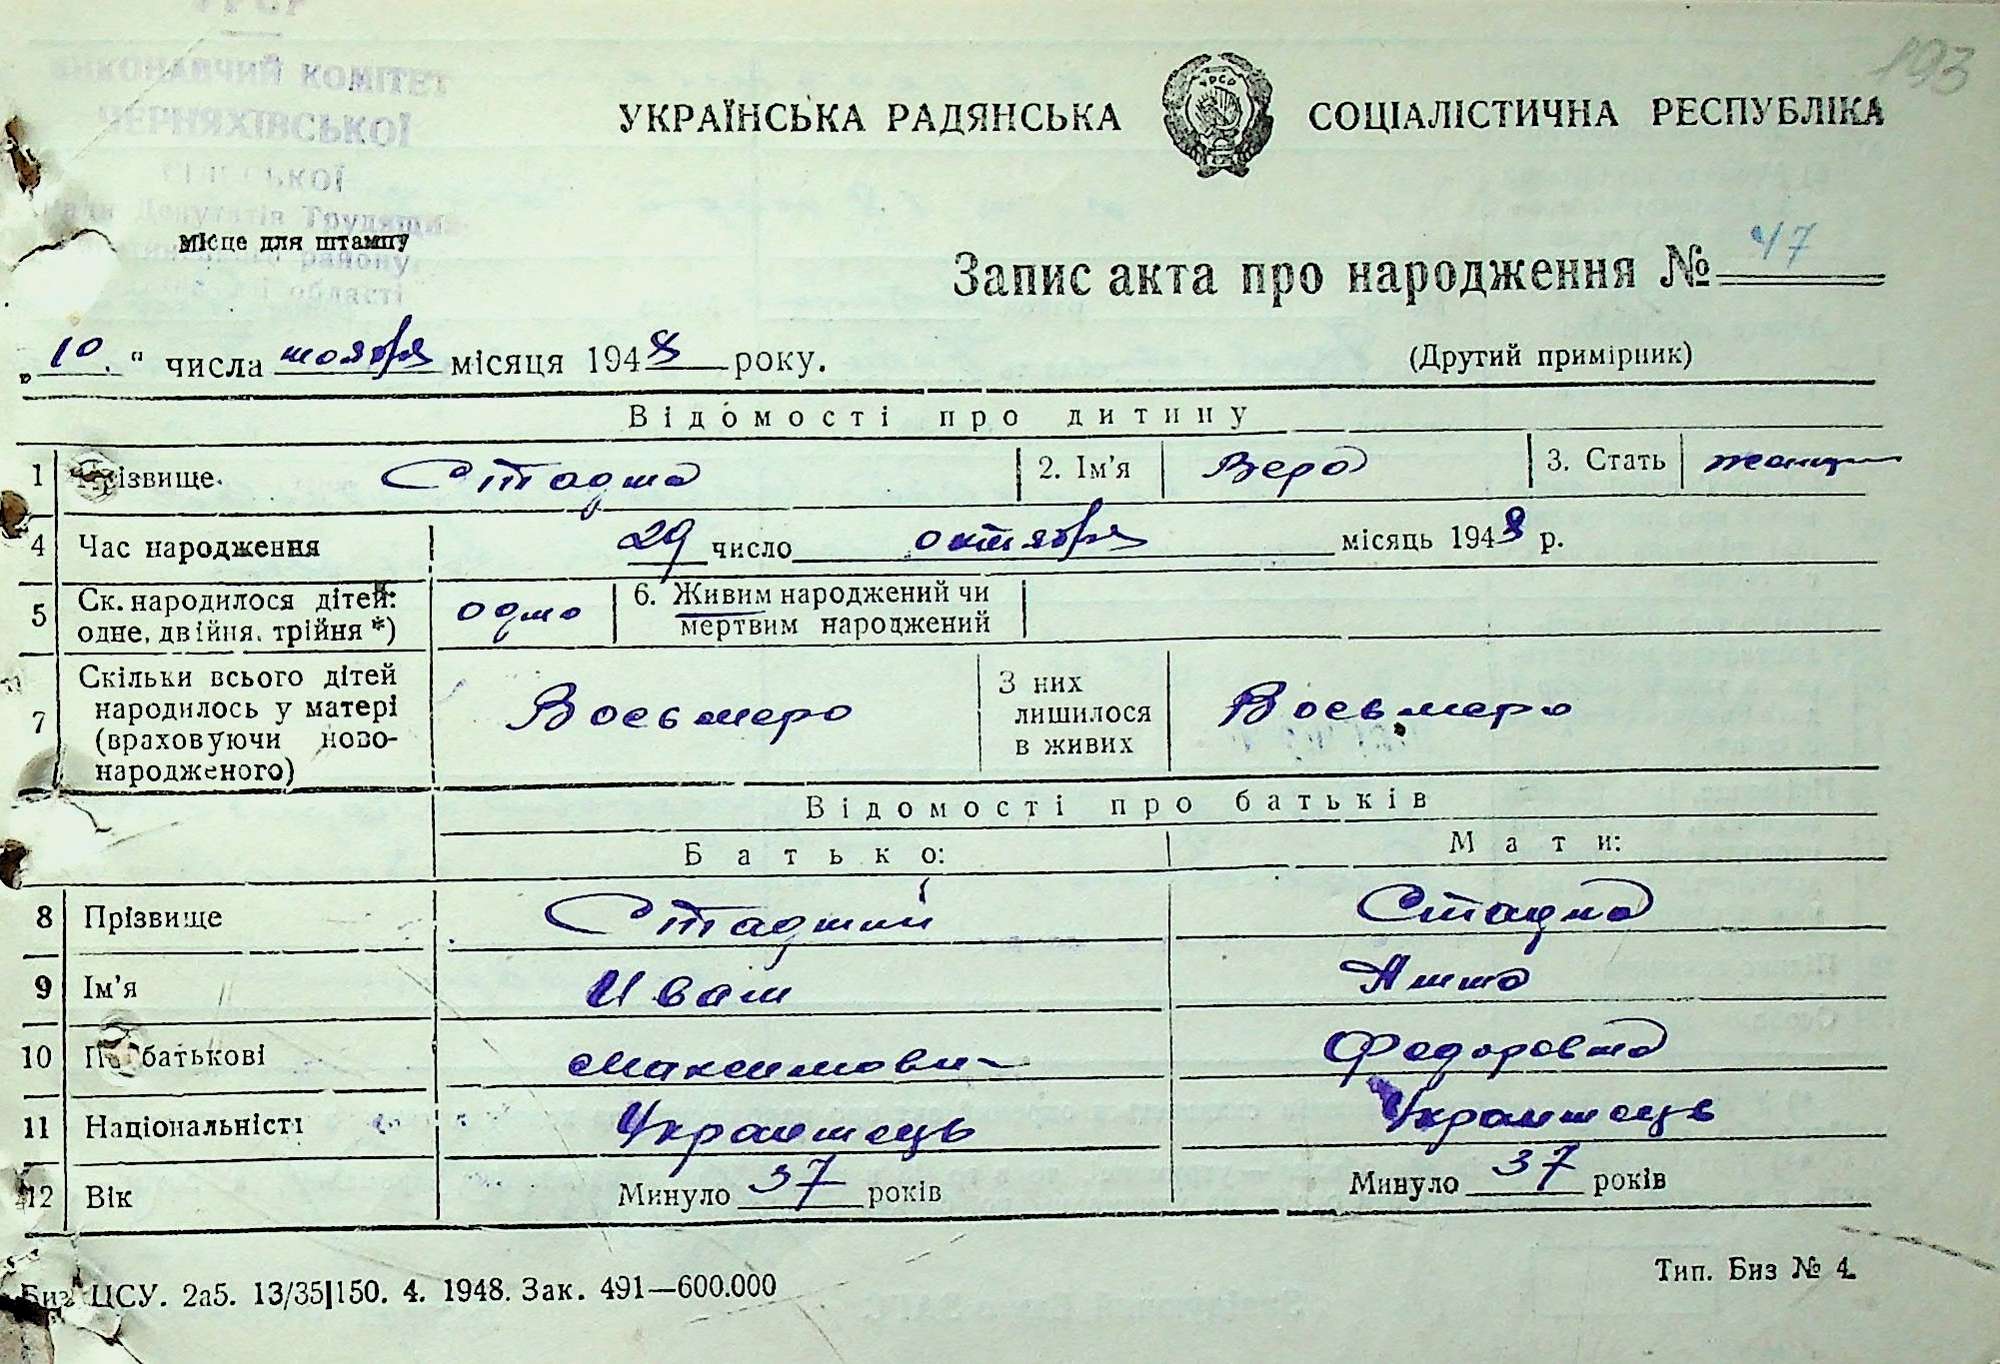 193
ВИКОНАВЧИЙ КОМІТЕТ
ЧЕРНЯХІВСЬКОЇ
Депутатів Трудящих
району
області
УКРАЇНСЬКА РАДЯНСЬКА СОЦІАЛІСТИЧНА РЕСПУБЛІКА
Місце для штампу
Запис акта про народження № 47
„10.“ числа ноября місяця 1948 року.
(Другий примірник)
Відомості про дитину
1 Прізвище Стадна 2. Ім'я Вера 3. Стать
4 Час народження 29 число октября місяць 1948 р.
5 Ск. народилося дітей: одно 6. Живим народжений чи
одне, двійня, трійня *) мертвим народжений
7 Скільки всього дітей
народилось у матері
(враховуючи ново-
народженого)
Восьмеро
З них
лишилося
в живих
Восьмеро
Відомості про батьків
Батько: Мати:
8 Прізвище Стадний Стадна
9 Ім'я Иван Анна
10 По батькові Максимович Федоровна
11 Національність Украинець Украинець
12 Вік Минуло 37 років Минуло 37 років
Биз ЦСУ. 2а5. 13/35|150. 4. 1948. Зак. 491—600.000
Тип. Биз № 4.